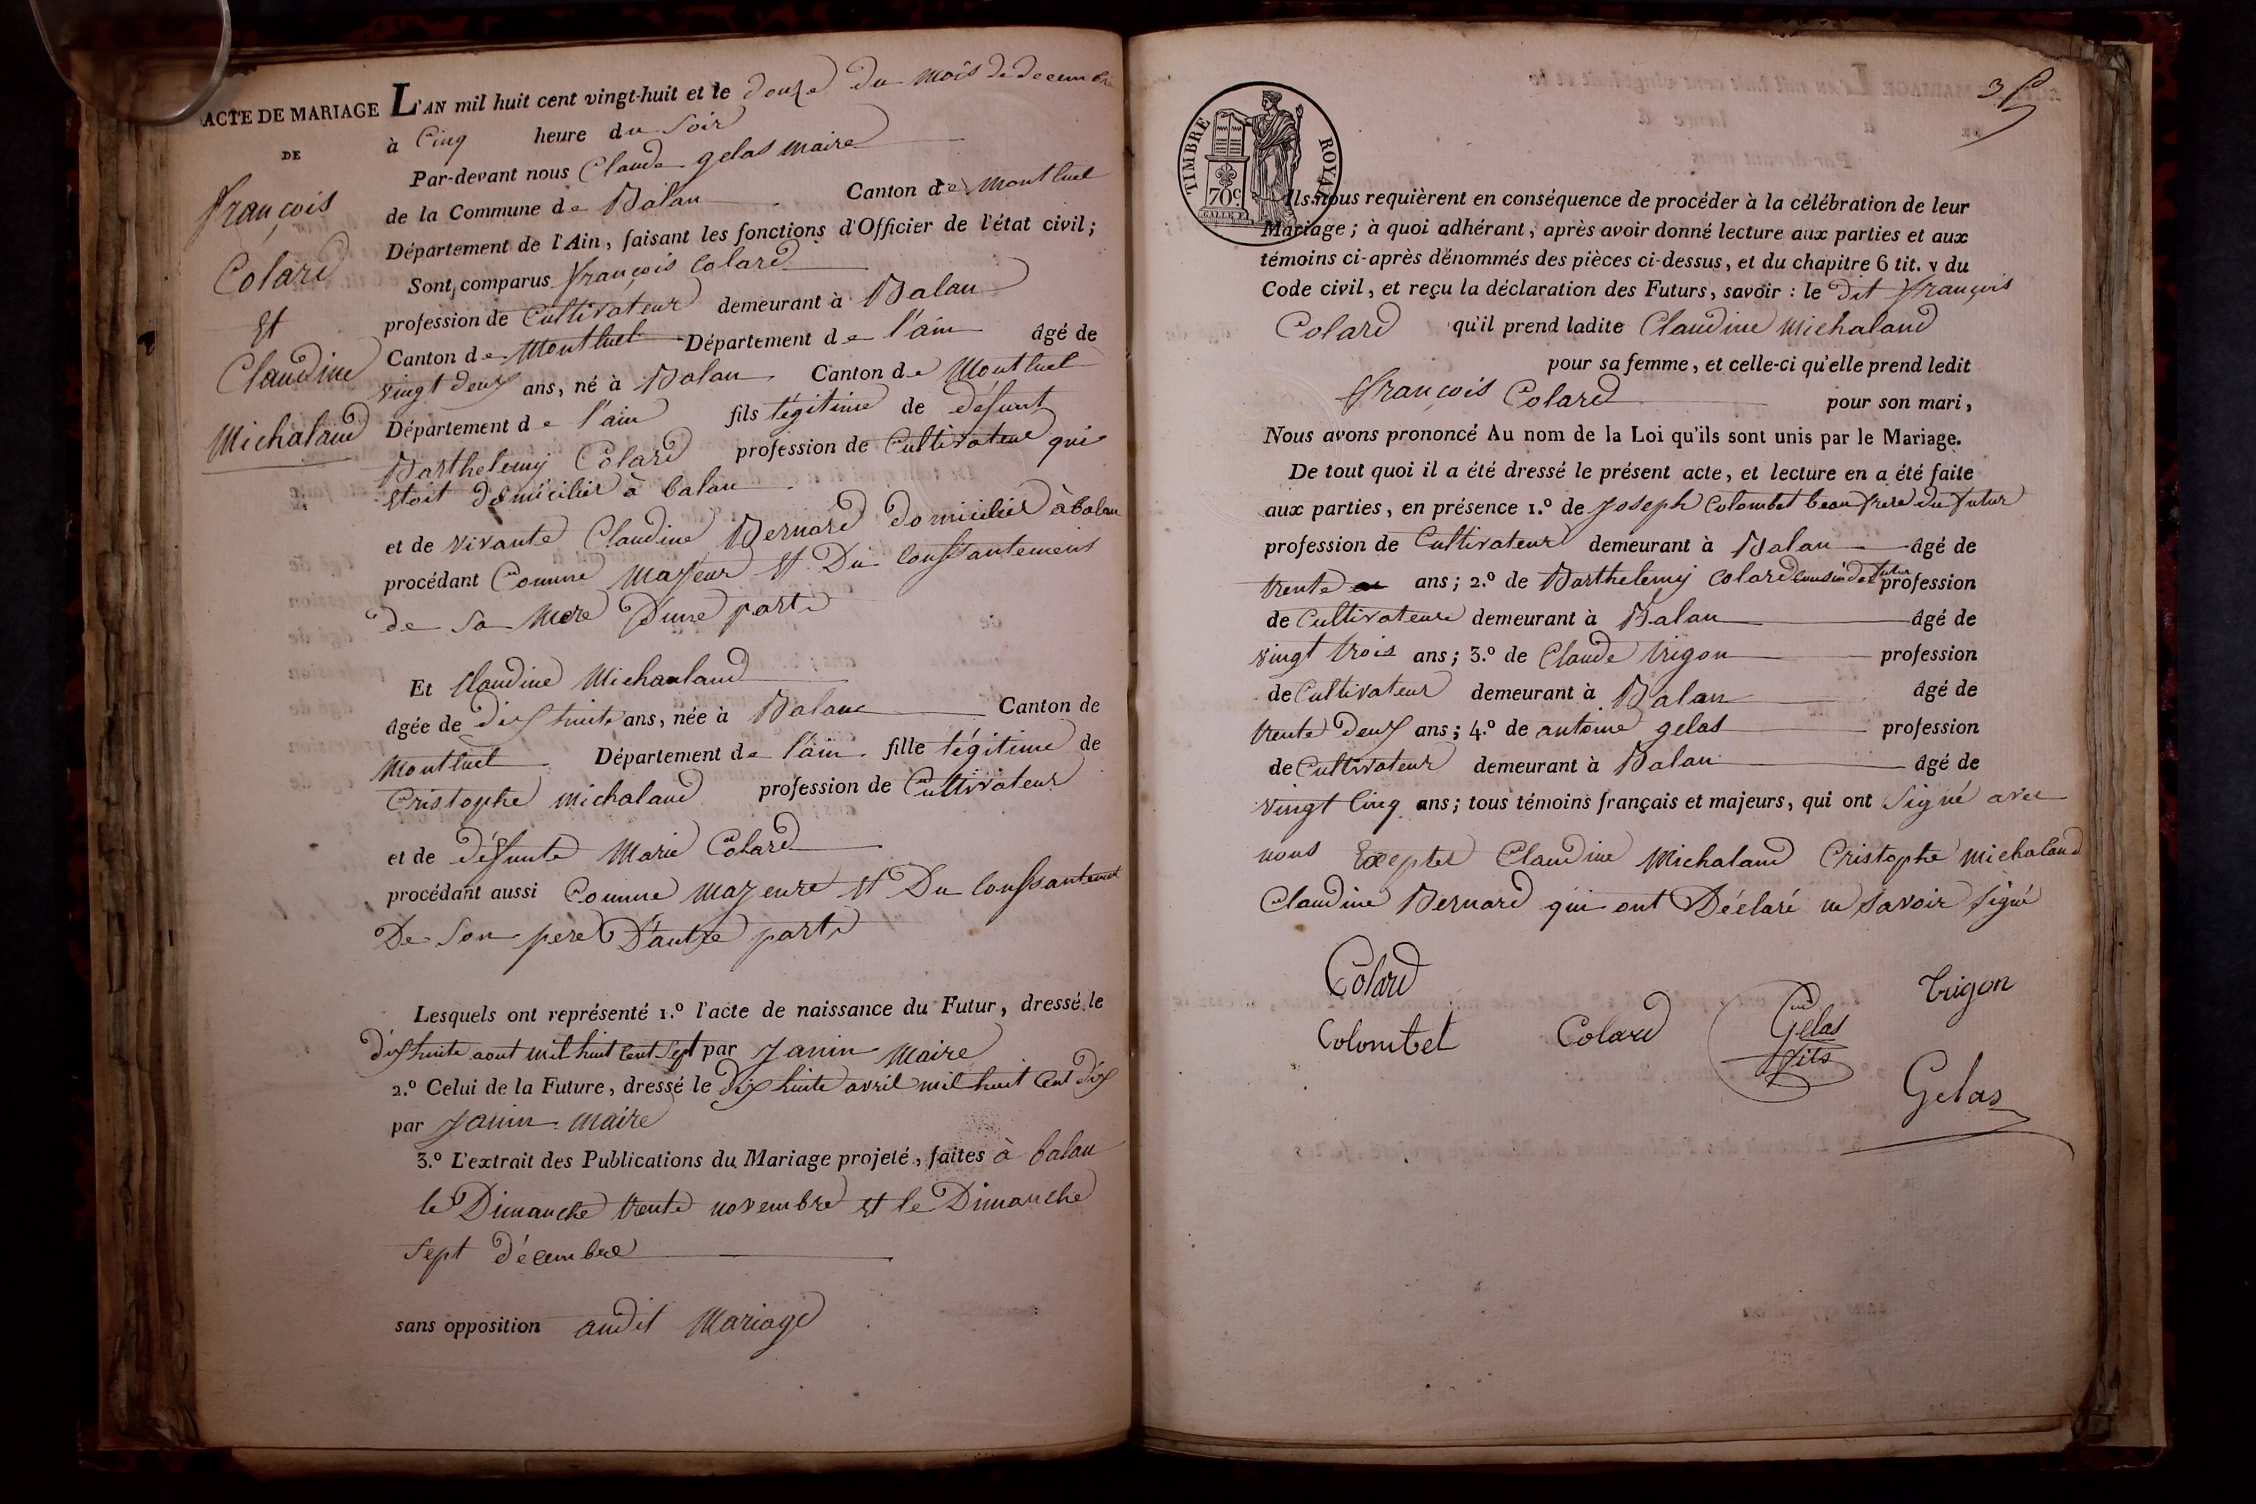 ACTE DE MARIAGE
DE
François
Colard
Et
Claudine
Michaland
L'AN mil huit cent vingt-huit et le douze du mois de decembre
à Cinq heure du Soir
Par-devant nous Claude gelas maire
de la Commune de Balan Canton de Montluel
Département de l'Ain, faisant les fonctions d'Officier de l'état civil;
Sont comparus françois Colard
profession de Cultivateur demeurant à Balan
Canton de Montluel Département de l'ain âgé de
vingt deux ans, né à Balan Canton de Montluel
Département de l'ain fils légitime de défunt
Barthelemy Colard profession de Cultivateur qui
etoit domicilié à balan
et de vivante Claudine Bernard domicilié à balan
procédant Comme Majeur et Du
de sa Mere D'une part
Et Claudine Michaland
âgée de dix huite ans, née à Balan Canton de
Montluel Département de l'ain fille légitime de
Cristophe michaland profession de Cultivateur
et de défunte Marie Colard
procédant aussi Comme mazeure et Du
De Son pere D'autre part
Lesquels ont représenté 1.º l'acte de naissance du Futur, dressé le
dix huite aout mil huit Cent Sept par Janin Maire
2.º Celui de la Future, dressé le dix huite avril mil huit Cent dix
par Janin maire
3.º L'extrait des Publications du Mariage projeté, faites à balan
le Dimanche trente novembre et le Dimanche
Sept décembre
sans opposition audit Mariage
TIMBRE ROYAL
70c
Ils nous requièrent en conséquence de procéder à la célébration de leur
Mariage; à quoi adhérant, après avoir donné lecture aux parties et aux
témoins ci-après dénommés des pièces ci-dessus, et du chapitre 6 tit. v du
Code civil, et reçu la déclaration des Futurs, savoir : le dit françois
Colard qu'il prend ladite Claudine Michaland
pour sa femme, et celle-ci qu'elle prend ledit
françois Colard pour son mari,
Nous avons prononcé Au nom de la Loi qu'ils sont unis par le Mariage.
De tout quoi il a été dressé le présent acte, et lecture en a été faite
aux parties, en présence 1.º de Joseph Colombet beau frere du futur
profession de Cultivateur demeurant à Balan âgé de
trente ans; 2.º de Barthelemy Colard Cousin du futur profession
de Cultivateur demeurant à Balan âgé de
vingt trois ans; 3.º de Claude trigon profession
de Cultivateur demeurant à Balan âgé de
trente deux ans; 4.º de antoine gelas profession
de Cultivateur demeurant à Balan âgé de
vingt Cinq ans; tous témoins français et majeurs, qui ont Signé avec
nous Excepter Claudine Michaland Cristophe michaland
Claudine Bernard qui ont Déclaré ne Savoir Signé
Colard
Trigon
Colombet Colard Gelas
fils
Gelas